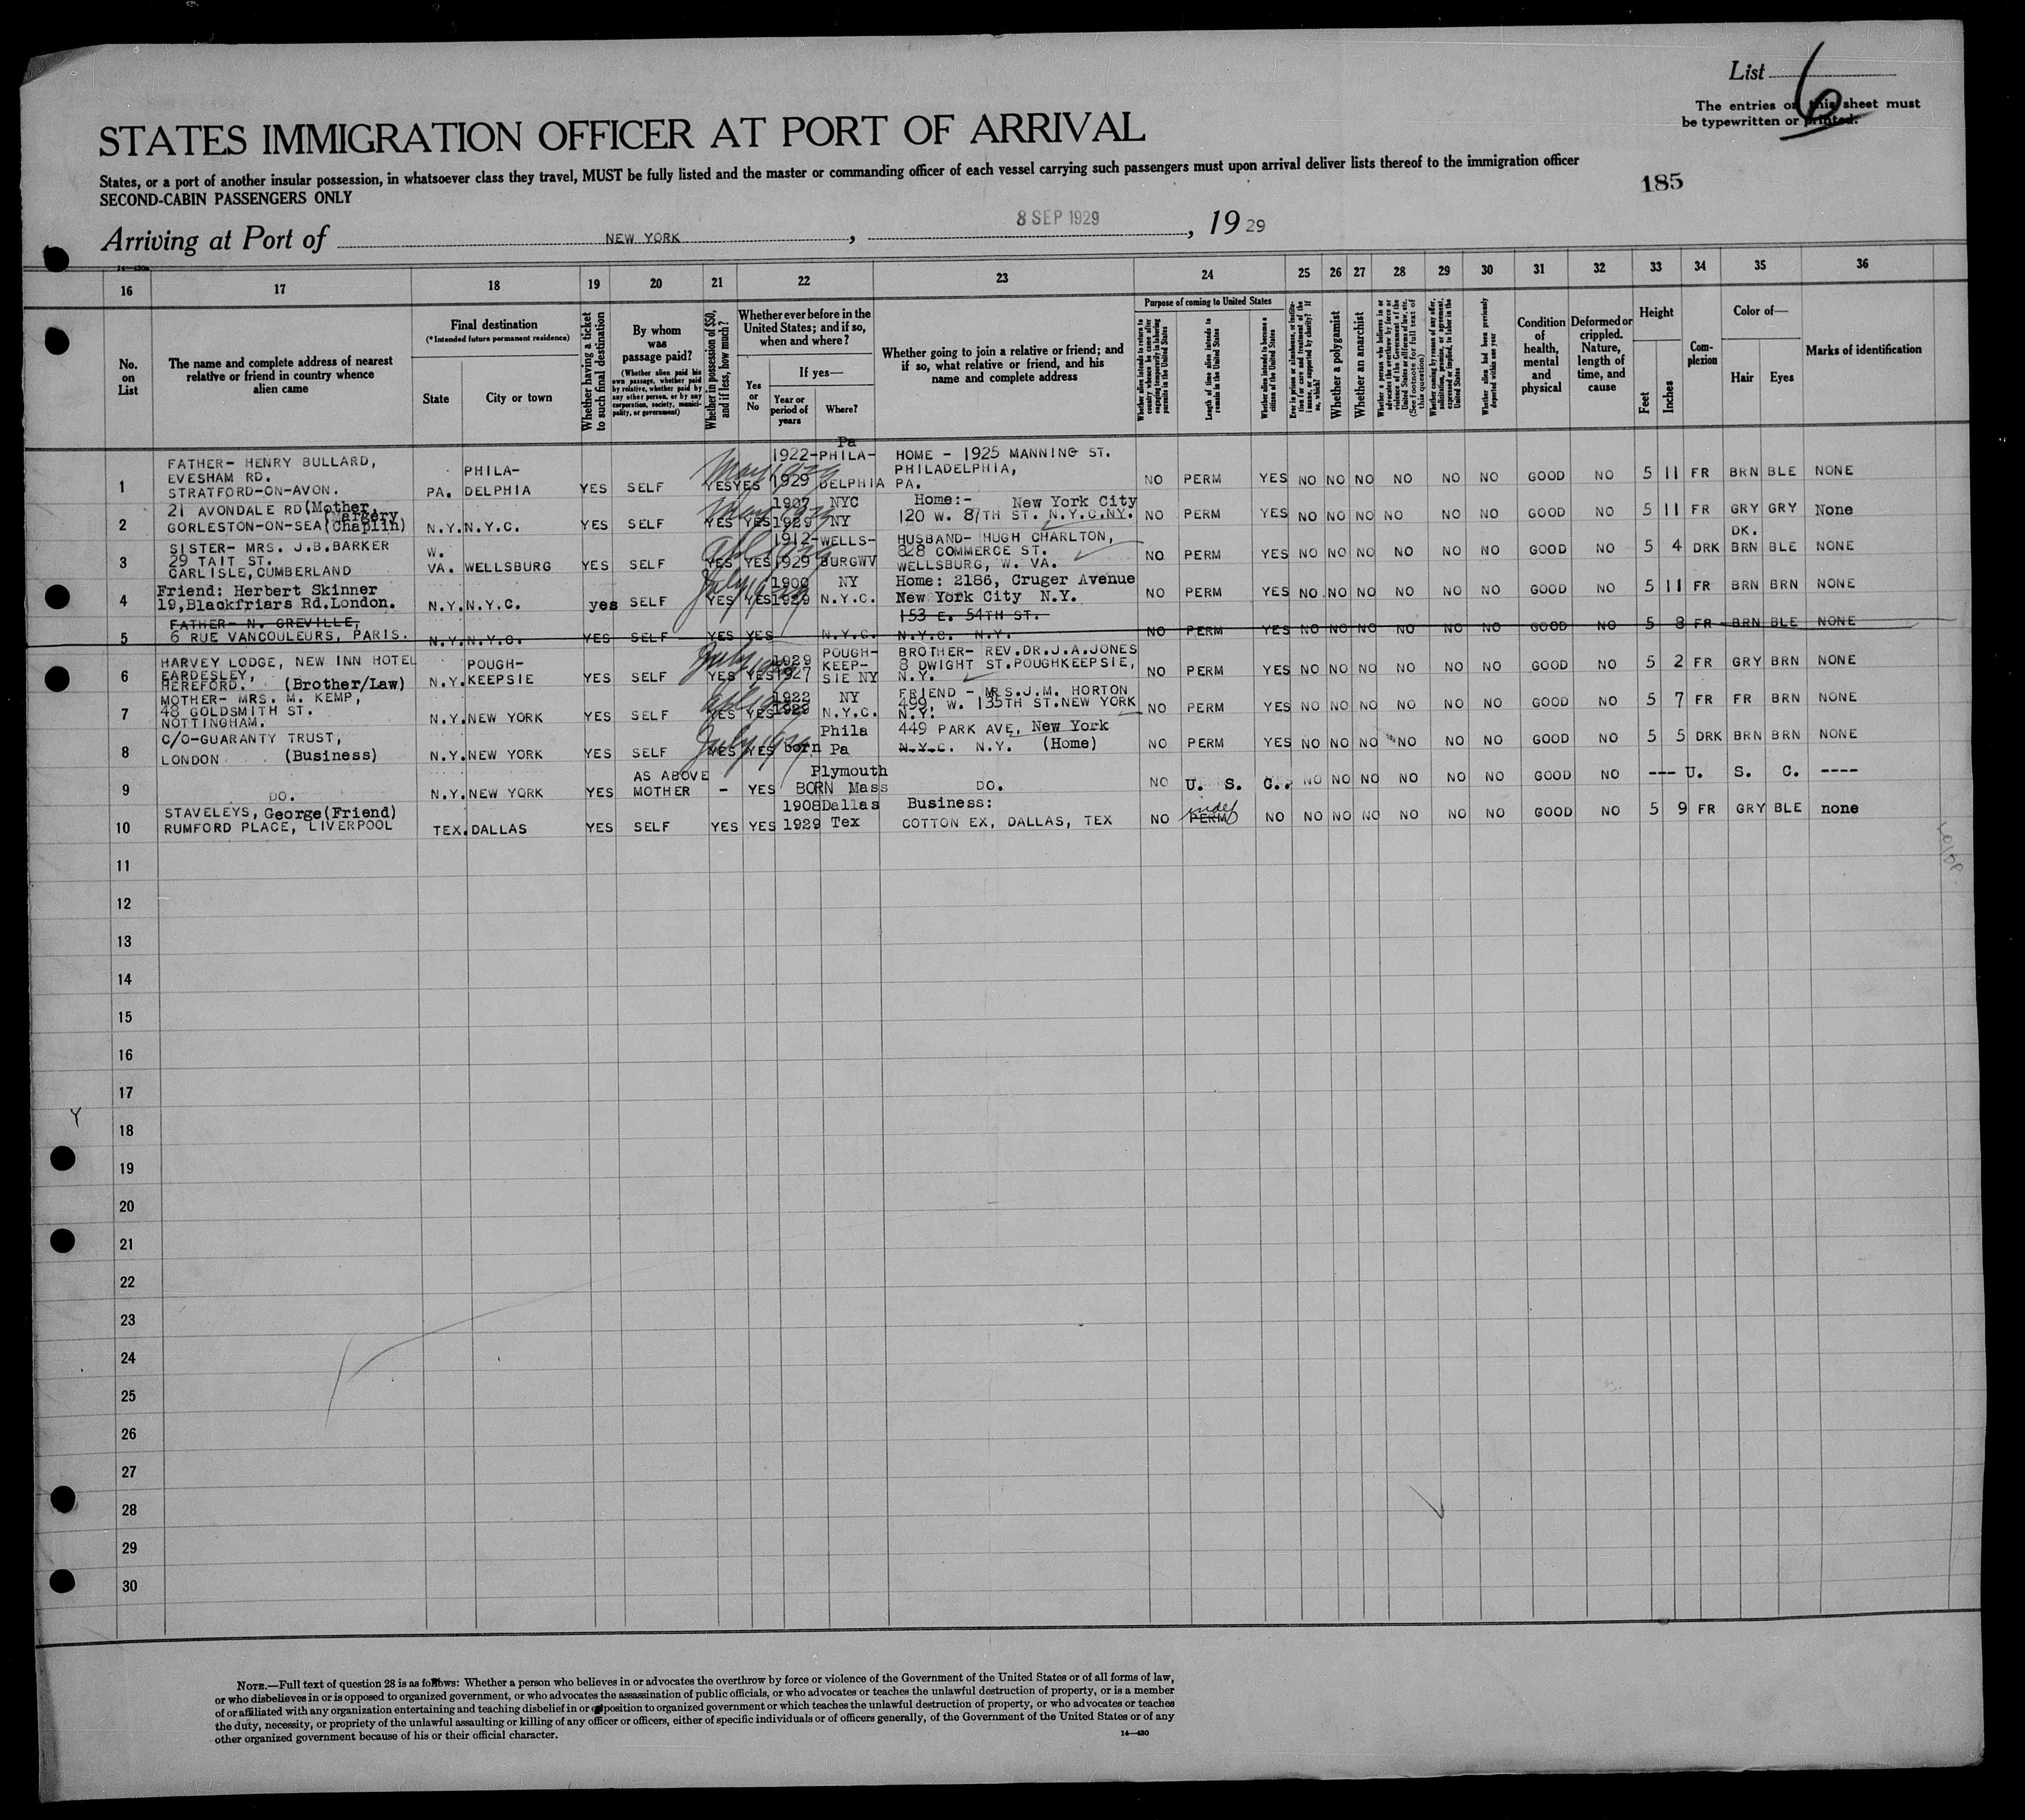 List 6
The entries on this sheet must
be typewritten or printed.
STATES IMMIGRATION OFFICER AT PORT OF ARRIVAL
States, or a port of another insular possession, in whatsoever class they travel, MUST be fully listed and the master or commanding officer of each vessel carrying such passengers must upon arrival deliver lists thereof to the immigration officer
SECOND-CABIN PASSENGERS ONLY
185
Arriving at Port of NEW YORK, 8 SEP 1929, 1929
16 17 18 19 20 21 22 23 24 25 26 27 28 29 30 31 32 33 34 35 36
No. on List
The name and complete address of nearest relative or friend in country whence alien came
Final destination
(*Intended future permanent residence)
State
City or town
Whether having a ticket to such final destination
By whom was passage paid?
(Whether alien paid his own passage, whether paid by relative, whether paid by any other person, or by any corporation, society, municipality, or government)
Whether in possession of $50, and if less, how much?
Whether ever before in the United States; and if so, when and where?
Yes or No
If yes—
Year or period of years
Where?
Whether going to join a relative or friend; and if so, what relative or friend, and his name and complete address
Purpose of coming to United States
Whether alien intends to return to country whence he came after engaging temporarily in laboring pursuits in the United States
Length of time alien intends to remain in the United States
Whether alien intends to become a citizen of the United States
Whether a polygamist
Whether an anarchist
Whether alien had been previously deported within one year
Condition of health, mental and physical
Deformed or crippled. Nature, length of time, and cause
Height
Feet
Inches
Complexion
Color of—
Hair
Eyes
Marks of identification
1 FATHER- HENRY BULLARD, EVESHAM RD. STRATFORD-ON-AVON. PA. PHILA-DELPHIA YES SELF YES YES May 1929 1922-1929 PHILA-DELPHIA Pa HOME - 1925 MANNING ST. PHILADELPHIA, PA. NO PERM YES NO NO NO NO NO NO GOOD NO 5 11 FR BRN BLE NONE
2 21 AVONDALE RD (Mother, Margery Chaplin) GORLESTON-ON-SEA N.Y. N.Y.C. YES SELF YES YES May 1929 1907 1929 NYC NY Home:- New York City 120 W. 87TH ST. N.Y.C.NY. NO PERM YES NO NO NO NO NO NO GOOD NO 5 11 FR GRY GRY None
3 SISTER- MRS. J.B.BARKER 29 TAIT ST. CARLISLE, CUMBERLAND W. VA. WELLSBURG YES SELF YES YES 1912-1929 WELLS-BURGWV HUSBAND- HUGH CHARLTON, 828 COMMERCE ST. WELLSBURG, W. VA. NO PERM YES NO NO NO NO NO NO GOOD NO 5 4 DRK DK. BRN BLE NONE
4 Friend: Herbert Skinner 19, Blackfriars Rd. London. N.Y. N.Y.C. yes SELF YES YES July 1929 1900 1929 NY N.Y.C. Home: 2186, Cruger Avenue New York City N.Y. NO PERM YES NO NO NO NO NO NO GOOD NO 5 11 FR BRN BRN NONE
5 FATHER- N. GREVILLE, 6 RUE VANCOULEURS, PARIS. N.Y. N.Y.C. YES SELF YES YES N.Y.C. 153 E. 54TH ST. N.Y.C. N.Y. NO PERM YES NO NO NO NO NO NO GOOD NO 5 8 FR BRN BLE NONE
6 HARVEY LODGE, NEW INN HOTEL EARDESLEY, HEREFORD. (Brother/Law) N.Y. POUGH-KEEPSIE YES SELF YES YES July 1929 1929 1927 POUGH-KEEP-SIE NY BROTHER- REV.DR.J.A.JONES 8 DWIGHT ST.POUGHKEEPSIE, N.Y. NO PERM YES NO NO NO NO NO NO GOOD NO 5 2 FR GRY BRN NONE
7 MOTHER- MRS. M. KEMP, 48 GOLDSMITH ST. NOTTINGHAM. N.Y. NEW YORK YES SELF YES YES 1922 1929 NY N.Y.C. FRIEND - MRS.J.M. HORTON 499, W. 135TH ST.NEW YORK N.Y. NO PERM YES NO NO NO NO NO NO GOOD NO 5 7 FR FR BRN NONE
8 C/O-GUARANTY TRUST, LONDON (Business) N.Y. NEW YORK YES SELF YES YES July 1929 born Phila Pa 449 PARK AVE, New York N.Y.C. N.Y. (Home) NO PERM YES NO NO NO NO NO NO GOOD NO 5 5 DRK BRN BRN NONE
9 DO. N.Y. NEW YORK YES AS ABOVE MOTHER - YES BORN Plymouth Mass DO. NO U. S. C. NO NO NO NO NO NO GOOD NO --- U. S. C. ----
10 STAVELEYS, George(Friend) RUMFORD PLACE, LIVERPOOL TEX. DALLAS YES SELF YES YES 1908 1929 Dallas Tex Business: COTTON EX, DALLAS, TEX NO PERM indef NO NO NO NO NO NO NO GOOD NO 5 9 FR GRY BLE none
11
12
13
14
15
16
17
18
19
20
21
22
23
24
25
26
27
28
29
30
NOTE.—Full text of question 28 is as follows: Whether a person who believes in or advocates the overthrow by force or violence of the Government of the United States or of all forms of law,
or who disbelieves in or is opposed to organized government, or who advocates the assassination of public officials, or who advocates or teaches the unlawful destruction of property, or is a member
of or affiliated with any organization entertaining and teaching disbelief in or opposition to organized government or which teaches the unlawful destruction of property, or who advocates or teaches
the duty, necessity, or propriety of the unlawful assaulting or killing of any officer or officers, either of specific individuals or of officers generally, of the Government of the United States or of any
other organized government because of his or their official character.
14—430